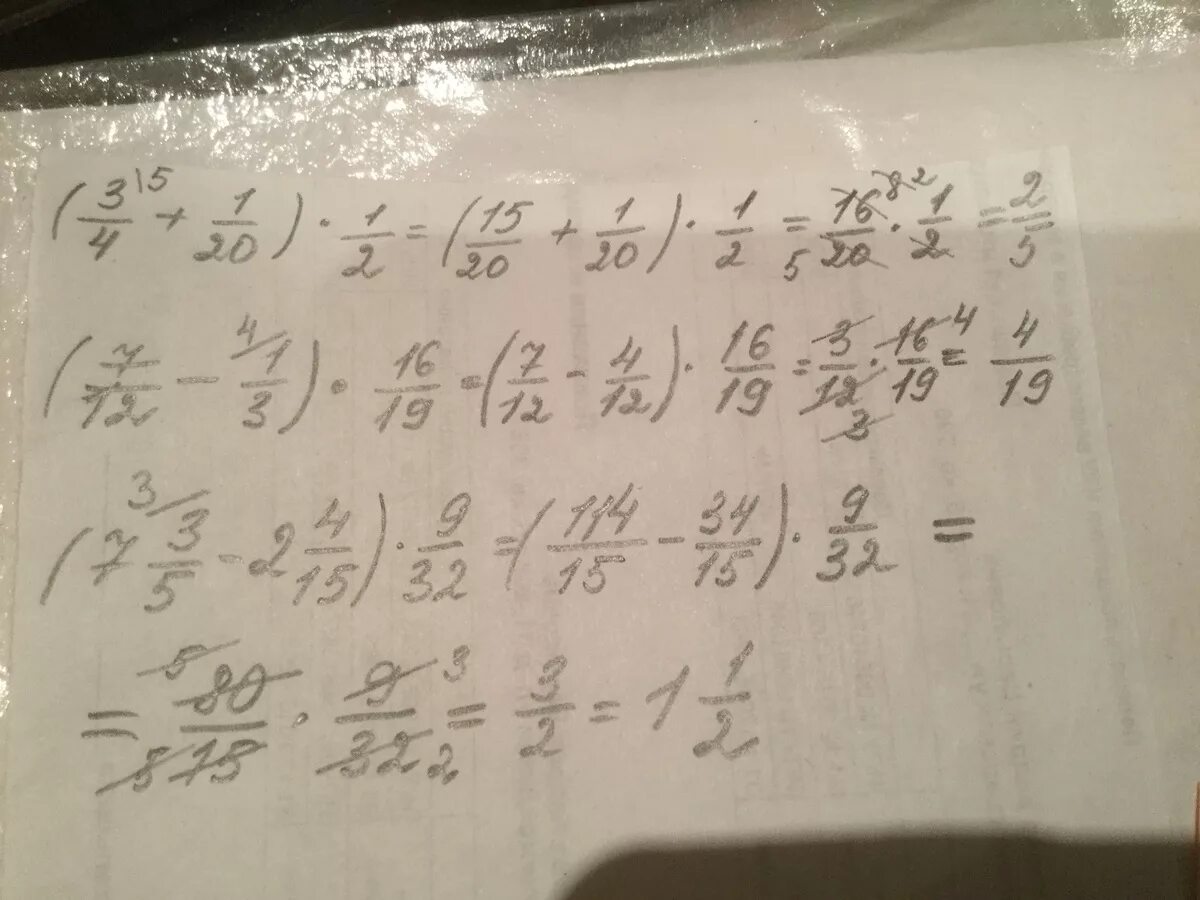 (3/4\5 + 1/20) · 1/2 = (15/20 + 1/20) · 1/2 = 16/20 · 1/2 = 2/5
(7/12 - 4/1/3) · 16/19 = (7/12 - 4/12) · 16/19 = 3/12 · 16/19 = 4/19
(7 3/3/5 - 2 4/15) · 9/32 = (114/15 - 34/15) · 9/32 =
= 80/15 · 9/32 = 3/2 = 1 1/2